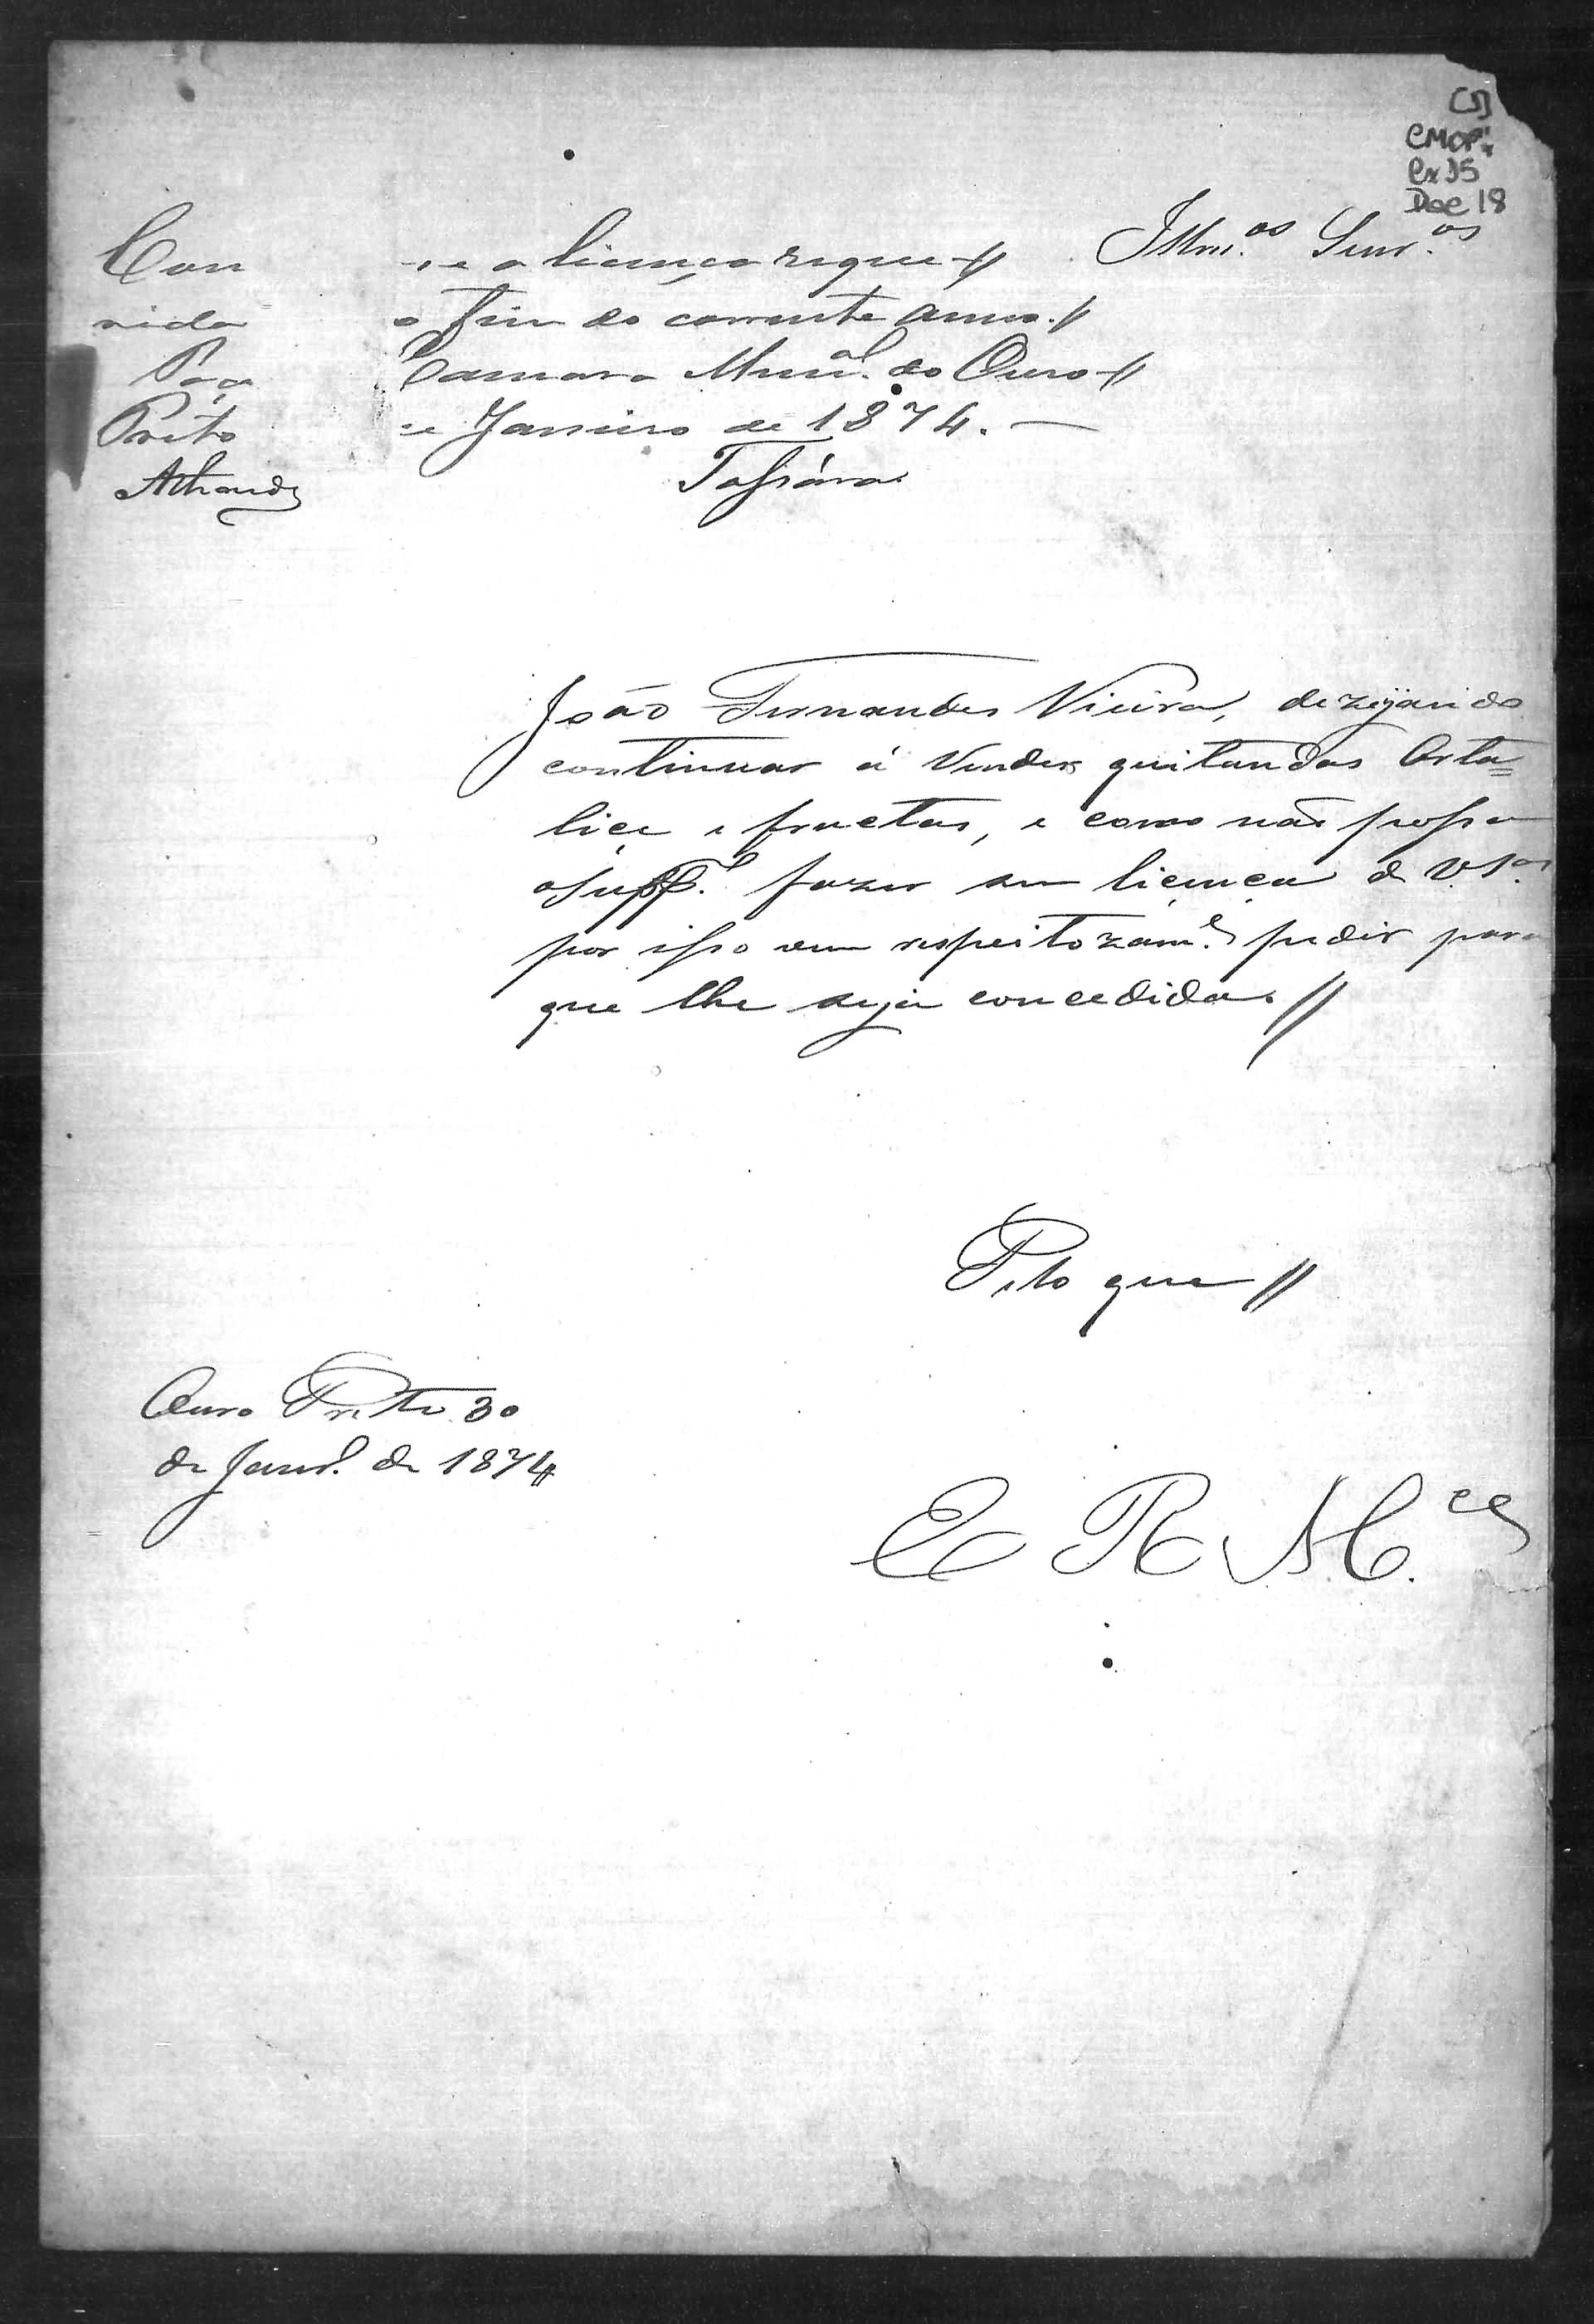 [5]
CMOP
Cx 35
Doc 18
Illm.os Senr.os
Con se a licença reque //
rida o fim do corrente anno. //
Paço Camara Mun.al do Ouro //
Preto de Janeiro de 1874. —
João Fernandes Vieira, dezejando
continuar á vender quitandas Orta=
lice e fructas, e como não possa
o Supp.e fazer sem licença de V.S.as
por isso vem respeitozam.e pedir para
que lhe seja concedida. //
P. ito que //
Ouro Preto 30
de Janr.o de 1874
E R M.ce